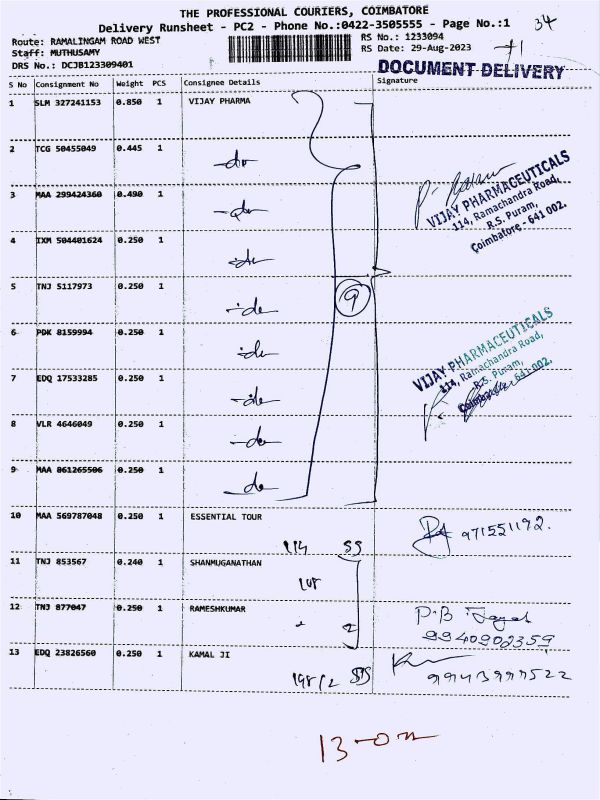 THE PROFESSIONAL COURIERS, COIMBATORE
Delivery Runsheet - PC2 - Phone No.:0422-3505555 - Page No.:1
34
Route: RAMALINGAM ROAD WEST
RS No.: 1233094
Staff: MUTHUSAMY
RS Date: 29-Aug-2023
DRS No.: DCJB123309401
DOCUMENT DELIVERY
S No Consignment No Weight PCS Consignee Details Signature
1 SLM 327241153 0.850 1 VIJAY PHARMA
2 TCG 50455049 0.445 1 -do
3 MAA 299424360 0.490 1 -do
VIJAY PHARMACEUTICALS
114, Ramachandra Road,
R.S. Puram,
Coimbatore - 641 002.
4 IXM 504401624 0.250 1 -do
5 TNJ 5117973 0.250 1 -do
9
6 PDK 8159994 0.250 1 -do
7 EDQ 17533285 0.250 1 -do
VIJAY PHARMACEUTICALS
114, Ramachandra Road,
R.S. Puram,
Coimbatore - 641 002.
8 VLR 4646049 0.250 1 -do
9 MAA 861265506 0.250 1 -do
10 MAA 569787048 0.250 1 ESSENTIAL TOUR
114 SS
971551192.
11 TNJ 853567 0.240 1 SHANMUGANATHAN
108
12 TNJ 877047 0.250 1 RAMESHKUMAR
2
P.B
9940902359
13 EDQ 23826560 0.250 1 KAMAL JI
198/2